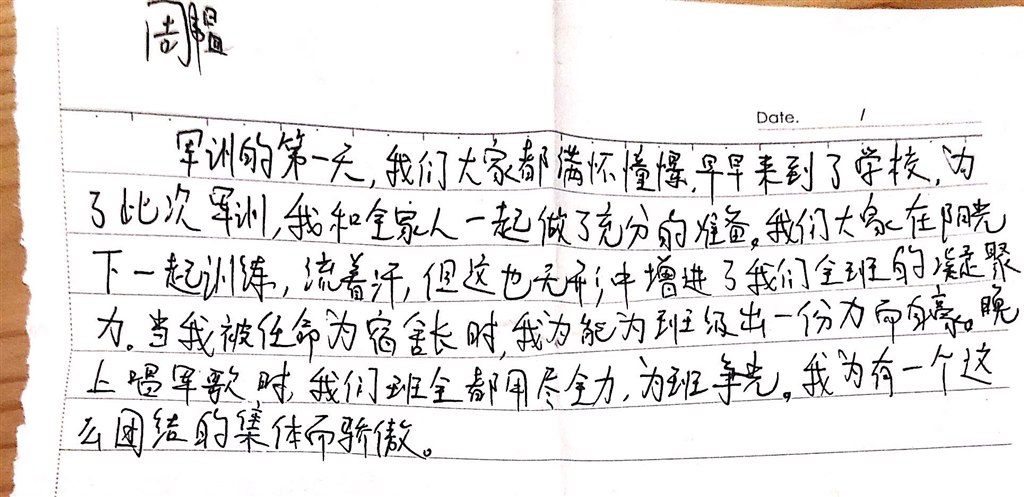 周韫
Date. /
军训的第一天,我们大家都满怀憧憬,早早来到了学校,为
了此次军训,我和全家人一起做了充分的准备。我们大家在阳光
下一起训练,流着汗,但这也无形中增进了我们全班的凝聚
力。当我被任命为宿舍长时,我为能为班级出一份力而自豪。晚
上唱军歌时,我们班全都用尽全力,为班争光。我为有一个这
么团结的集体而骄傲。